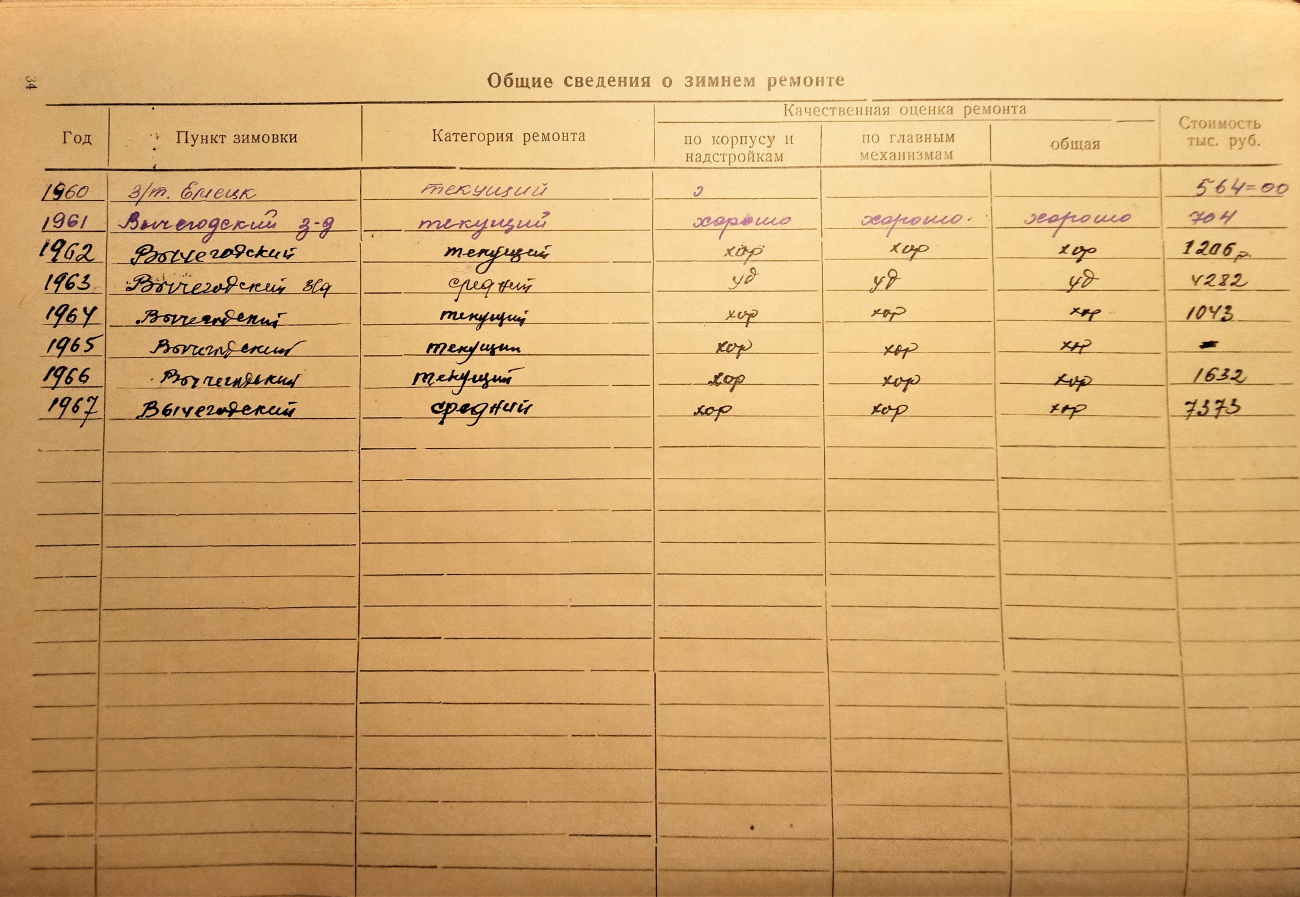 34
Общие сведения о зимнем ремонте
Год Пункт зимовки Категория ремонта Качественная оценка ремонта Стоимость тыс. руб.
по корпусу и надстройкам по главным механизмам общая
1960 з/т. Емецк текущий 564=00
1961 Вычегодский з-д текущий хорошо хорошо хорошо 704
1962 Вычегодский текущий хор хор хор 1206р
1963 Вычегодский з-д средний уд уд уд 4282
1964 Вычегодский текущий хор хор хор 1043
1965 Вычегодский текущий хор хор хор -
1966 Вычегодский текущий хор хор хор 1632
1967 Вычегодский средний хор хор хор 7373